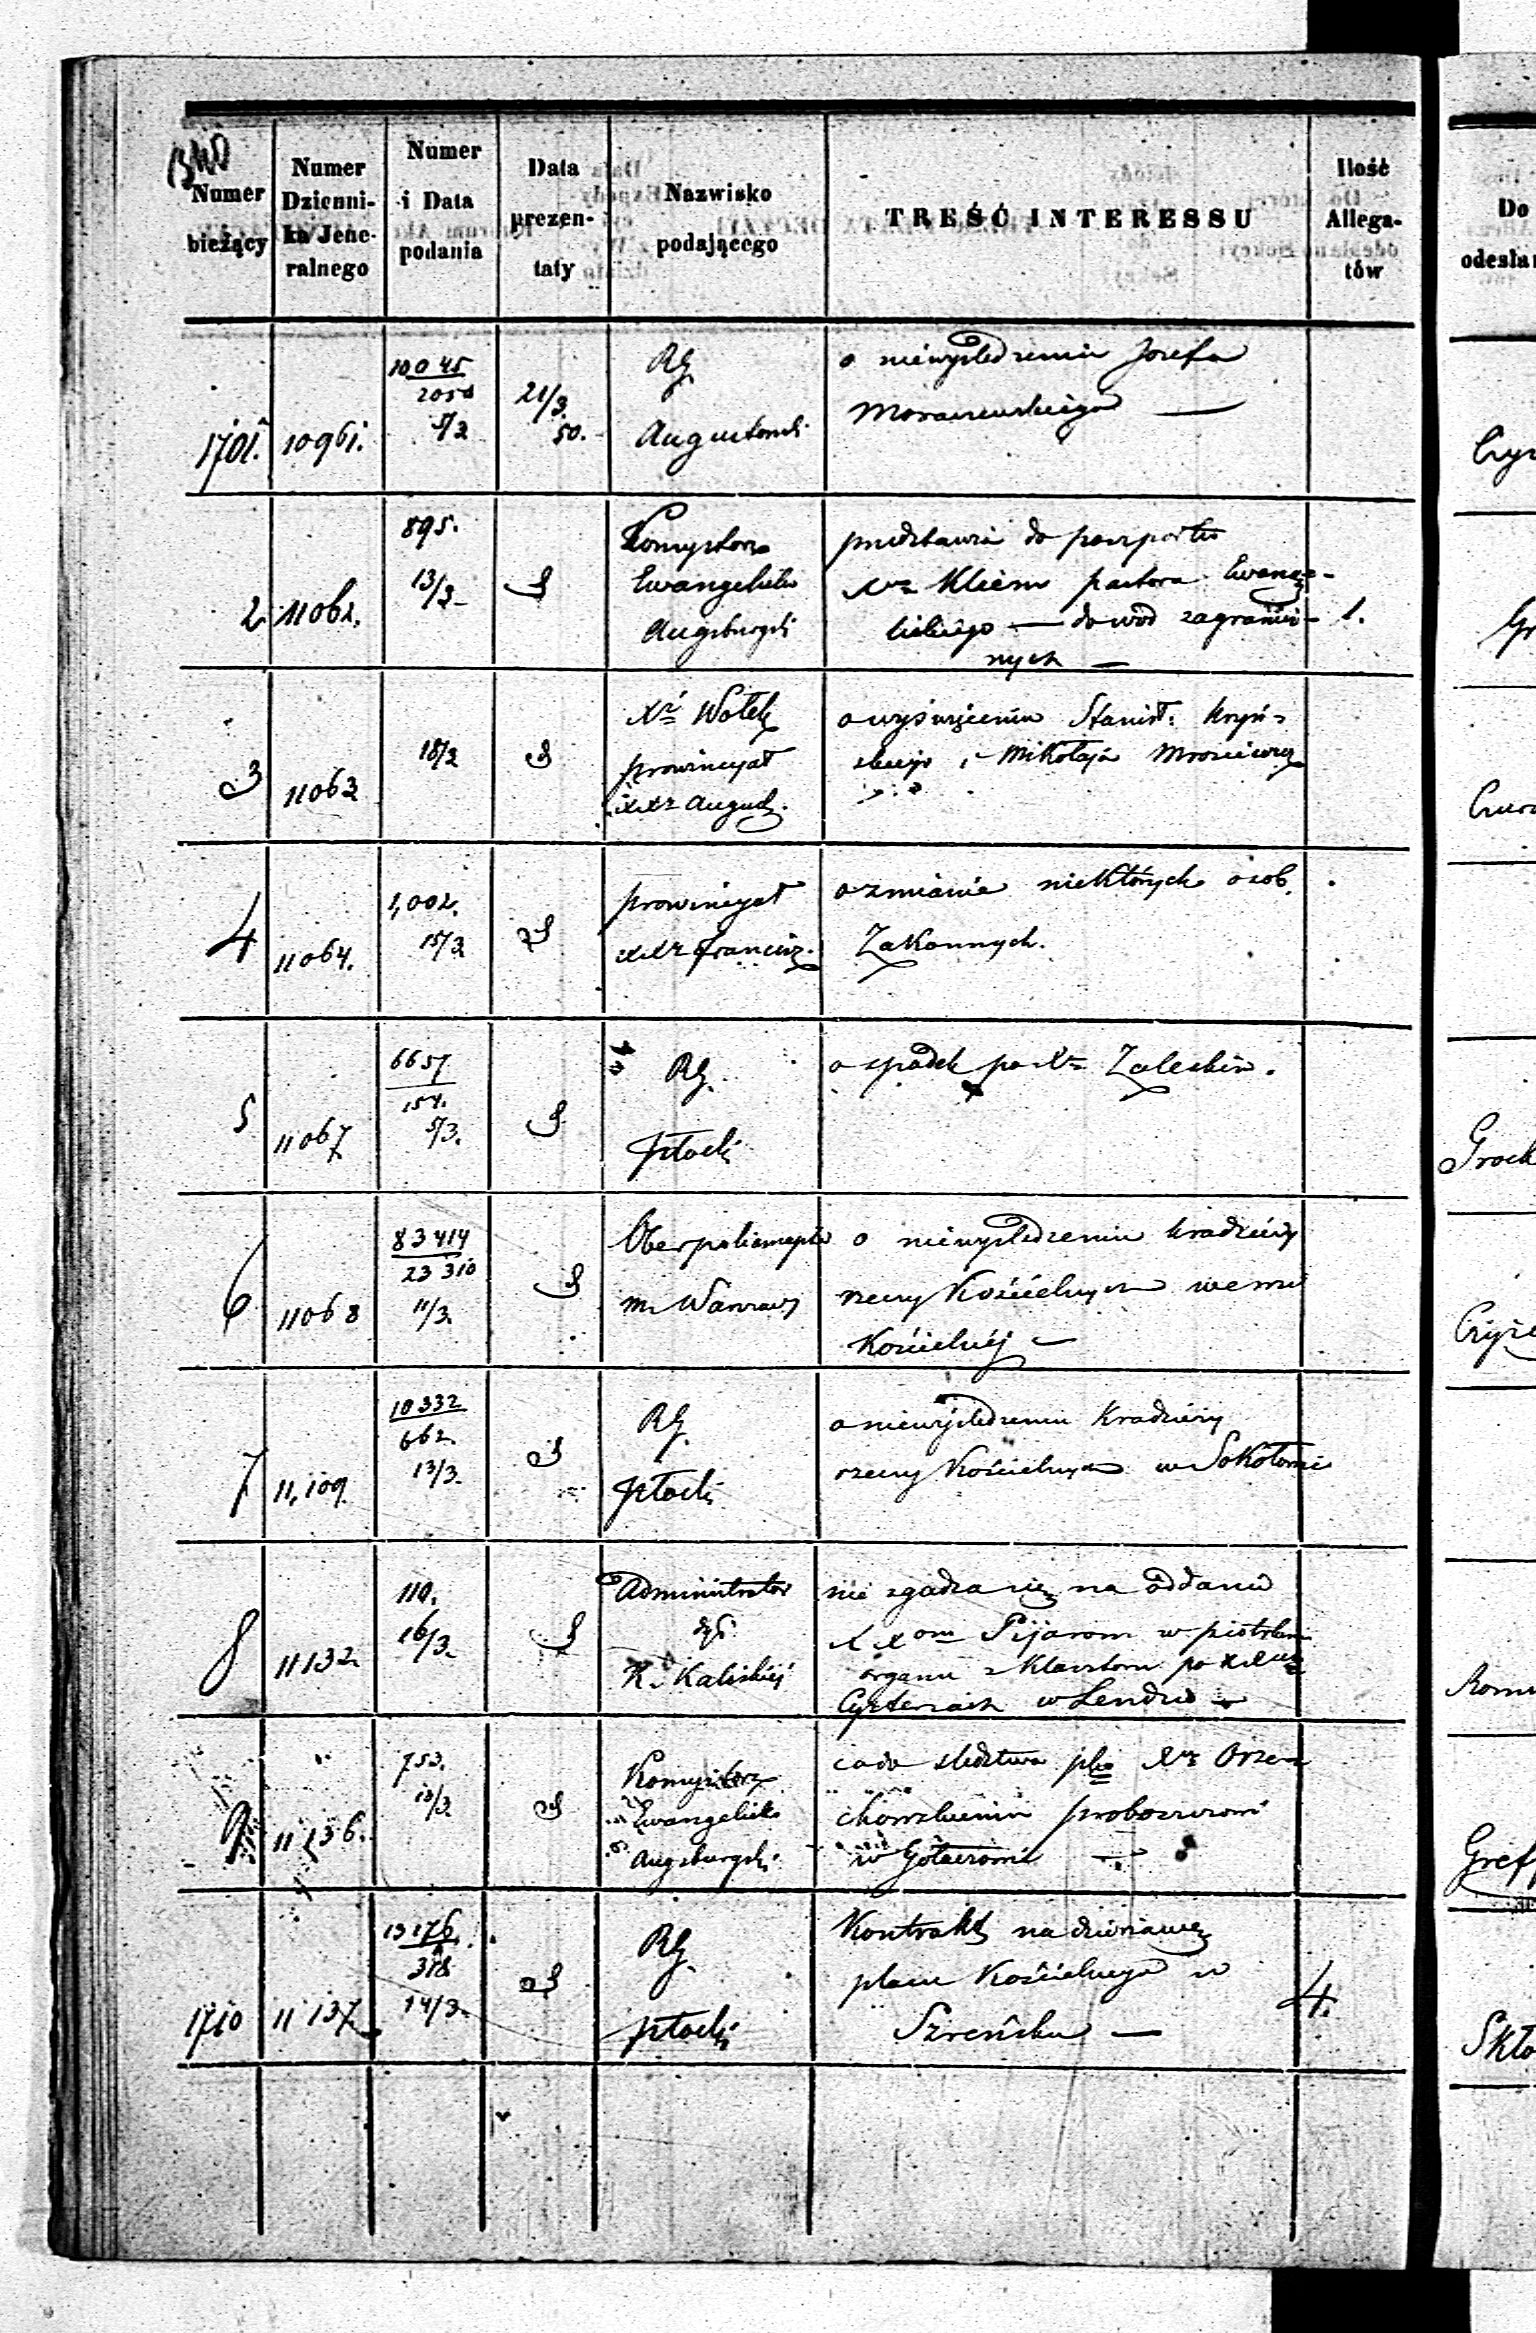 Numer bieżący
Numer Dzienni-ka Jene-ralnego
Numer i Data podania
Data prezen-taty
Nazwisko podającego
TREŚĆ INTERESSU
Ilość Allega-tów
Do
odesła
1701. 10961. 10045 21/3 50. RG Augustowski
o niewyśledzeniu Józefa
Moraczewskiego —
2 11062. 895. 13/3 Ewangelicko Augsburgski 1.
przedstawia do paszportu
Xa Kliem pastora Ewange-
lickiego — do wód zagranicz-
nych —
3 11063 18/3 Xr Wołek prowincyał XXr August.
o wyświęceniu Stanisł: Kryń-
skiego i Mikołaja
4 11064. 1,002. 15/3 prowincyał XXr Francisz.
o zmianie niektórych osob
Zakonnych.
5 11067 6657 154. 5/3. RG. Płocki
o spadek po Xr Zaleskim.
6 11068 83414 23310 11/3. Oberpolicmajster m. Warszawy
o niewyśledzeniu kradzieży
rzeczy Kościelnych we wsi
Kościelnéj —
7 11,109. 10332 662. 13/3. RG. Płocki
o niewyśledzeniu Kradzieży
rzeczy Kościelnych w Sokołowie
8 11132. 110. 16/3. Administrator dye. K. Kaliskiéj
nie zgadza się na oddanie
XXom Pijarom w piotrkow
organu z Klasztoru po XX
Cystersach w Lendzie —
9 11136. 753. 13/3. Ewangelicko Augsburgski
śledztwa Xr Orze-
chowskiemu proboszczowi
w
1710 11137. 13176. 318 14/3. RG. Płocki 4.
Kontrakt na dzierżawę
placu Kościelnego w
Szreńsku —